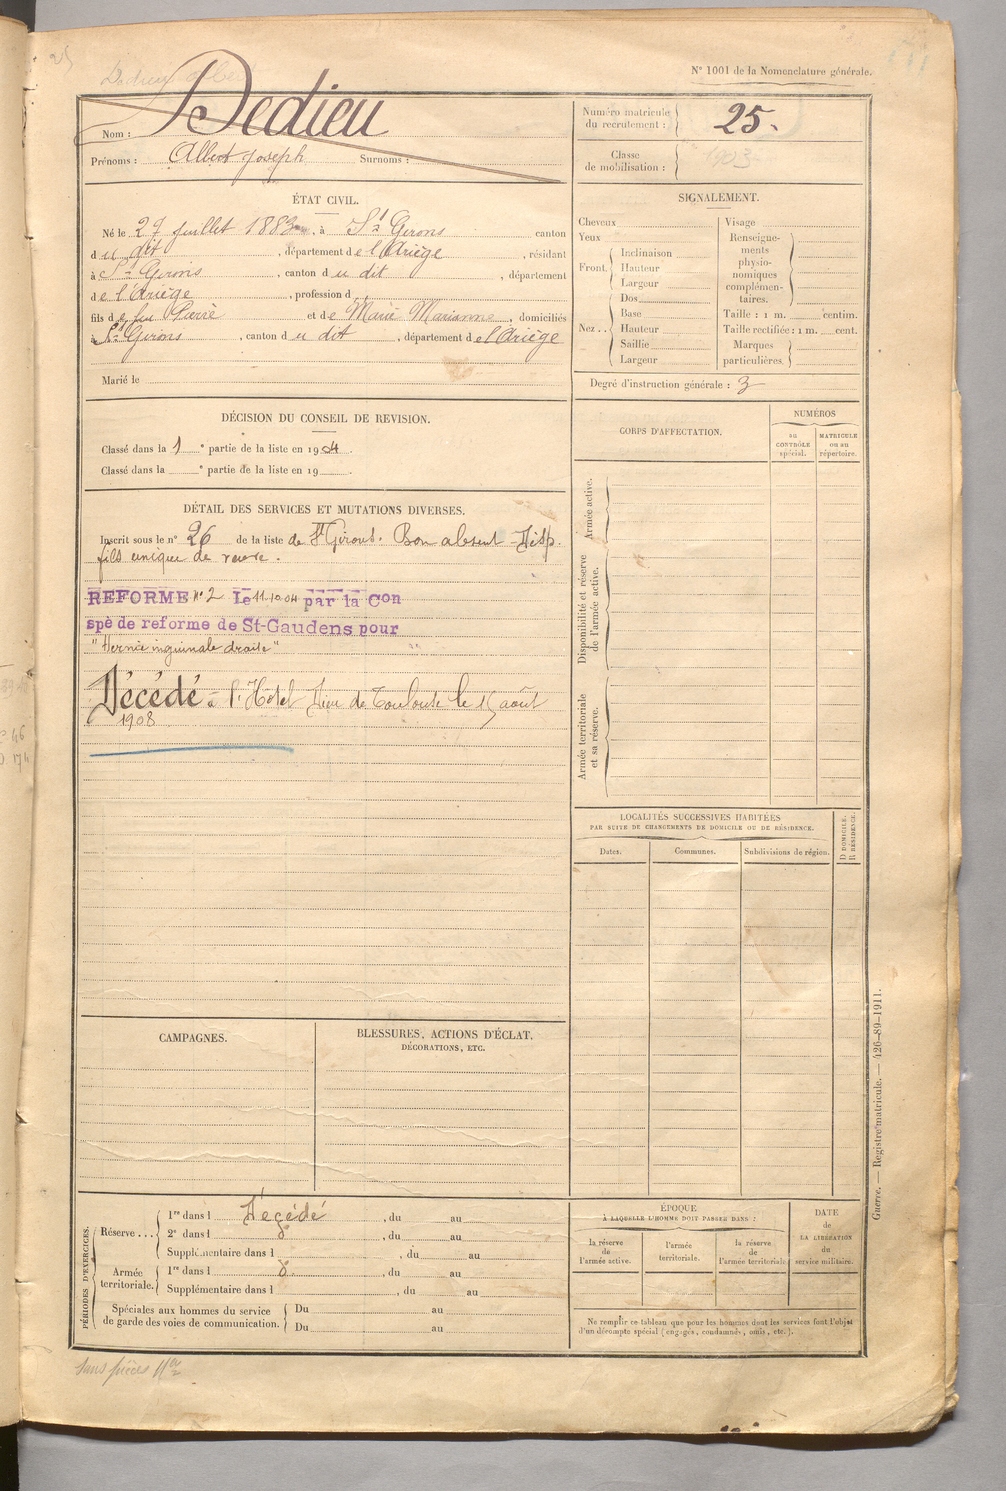 25
Dedieu Albert
N° 1001 de la Nomenclature générale.
Nom : Dedieu
Prénoms : Albert Joseph Surnoms :
Numéro matricule du recrutement : 25.
Classe de mobilisation : 1903
ÉTAT CIVIL.
Né le 27 juillet 1883, à St Girons canton
du dit, département de l'Ariège, résidant
à St Girons, canton du dit, département
de l'Ariège, profession d
fils de feu Pierre et de Marie Marianne, domiciliés
à St Girons, canton du dit, département de l'Ariège
Marié le
SIGNALEMENT.
Cheveux
Yeux
Front. Inclinaison
Hauteur
Largeur
Nez.. Dos
Base
Hauteur
Saillie
Largeur
Visage
Renseigne-
ments
physio-
nomiques
complémen-
taires.
Taille : 1 m. centim.
Taille rectifiée : 1 m. cent.
Marques
particulières.
Degré d'instruction générale : 3
DÉCISION DU CONSEIL DE REVISION.
Classé dans la 1e partie de la liste en 1904.
Classé dans la e partie de la liste en 19 .
DÉTAIL DES SERVICES ET MUTATIONS DIVERSES.
Inscrit sous le n° 26 de la liste de St Girons. Bon absent - Disp.
fils unique de veuve.
REFORME N° 2 Le 11.10.04 par la Con
spé de reforme de St-Gaudens pour
"Hernie inguinale droite"
Décédé à l'Hôtel Dieu de Toulouse le 15 août
1908
CORPS D'AFFECTATION.
NUMÉROS
au
CONTRÔLE
spécial.
MATRICULE
ou au
répertoire.
Armée active.
Disponibilité et réserve
de l'armée active.
Armée territoriale
et sa réserve.
LOCALITÉS SUCCESSIVES HABITÉES
PAR SUITE DE CHANGEMENTS DE DOMICILE OU DE RÉSIDENCE.
Dates.
Communes.
Subdivisions de région.
D DOMICILE.
R RÉSIDENCE.
CAMPAGNES.
BLESSURES, ACTIONS D'ÉCLAT,
DÉCORATIONS, ETC.
PÉRIODES D'EXERCICES.
Réserve... 1re dans l Décédé, du au
2e dans l do, du au
Supplémentaire dans l , du au
Armée
territoriale. 1re dans l do, du au
Supplémentaire dans l , du au
Spéciales aux hommes du service
de garde des voies de communication. Du au
Du au
ÉPOQUE
À LAQUELLE L'HOMME DOIT PASSER DANS :
la réserve
de
l'armée active.
l'armée
territoriale.
la réserve
de
l'armée territoriale
DATE
de
LA LIBÉRATION
du
service militaire.
Ne remplir ce tableau que pour les hommes dont les services font l'objet
d'un décompte spécial (engagés, condamnés, omis, etc.).
Guerre. — Registre matricule. — 426-89-1911.
sans pièces